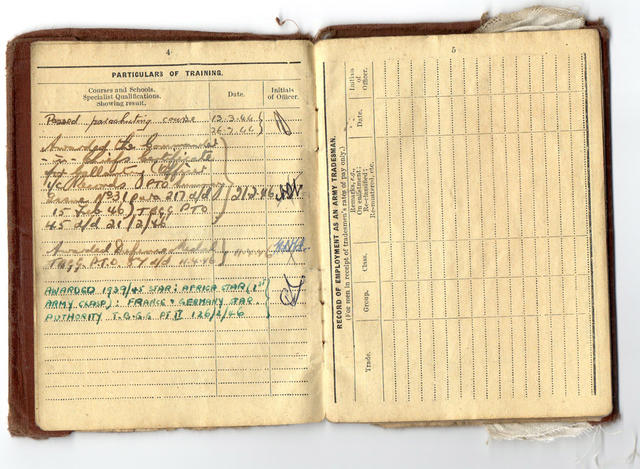 4
PARTICULARS OF TRAINING.
Courses and Schools.
Specialist Qualifications.
Showing result.
Date.
Initials
of Officer.
Passed parachuting course 13.3.44
26.3.44
Awarded the Commander
-in- Chief's Certificate
for Gallantry
15 Feb 46
45 d/d 21/2/46
21.2.46
Awarded Defence Medal
AWARDED 1939/45 STAR: AFRICA STAR (1st
ARMY CLASP): FRANCE & GERMANY STAR.
AUTHORITY T.B.G.G PT II 126/2/46
5
RECORD OF EMPLOYMENT AS AN ARMY TRADESMAN.
(For men in receipt of tradesmen's rates of pay only.)
Trade.
Group.
Class.
Remarks, e.g.,
On enlistment;
Re-classified;
Re-mustered, etc.
Date.
Initials
of
Officer.